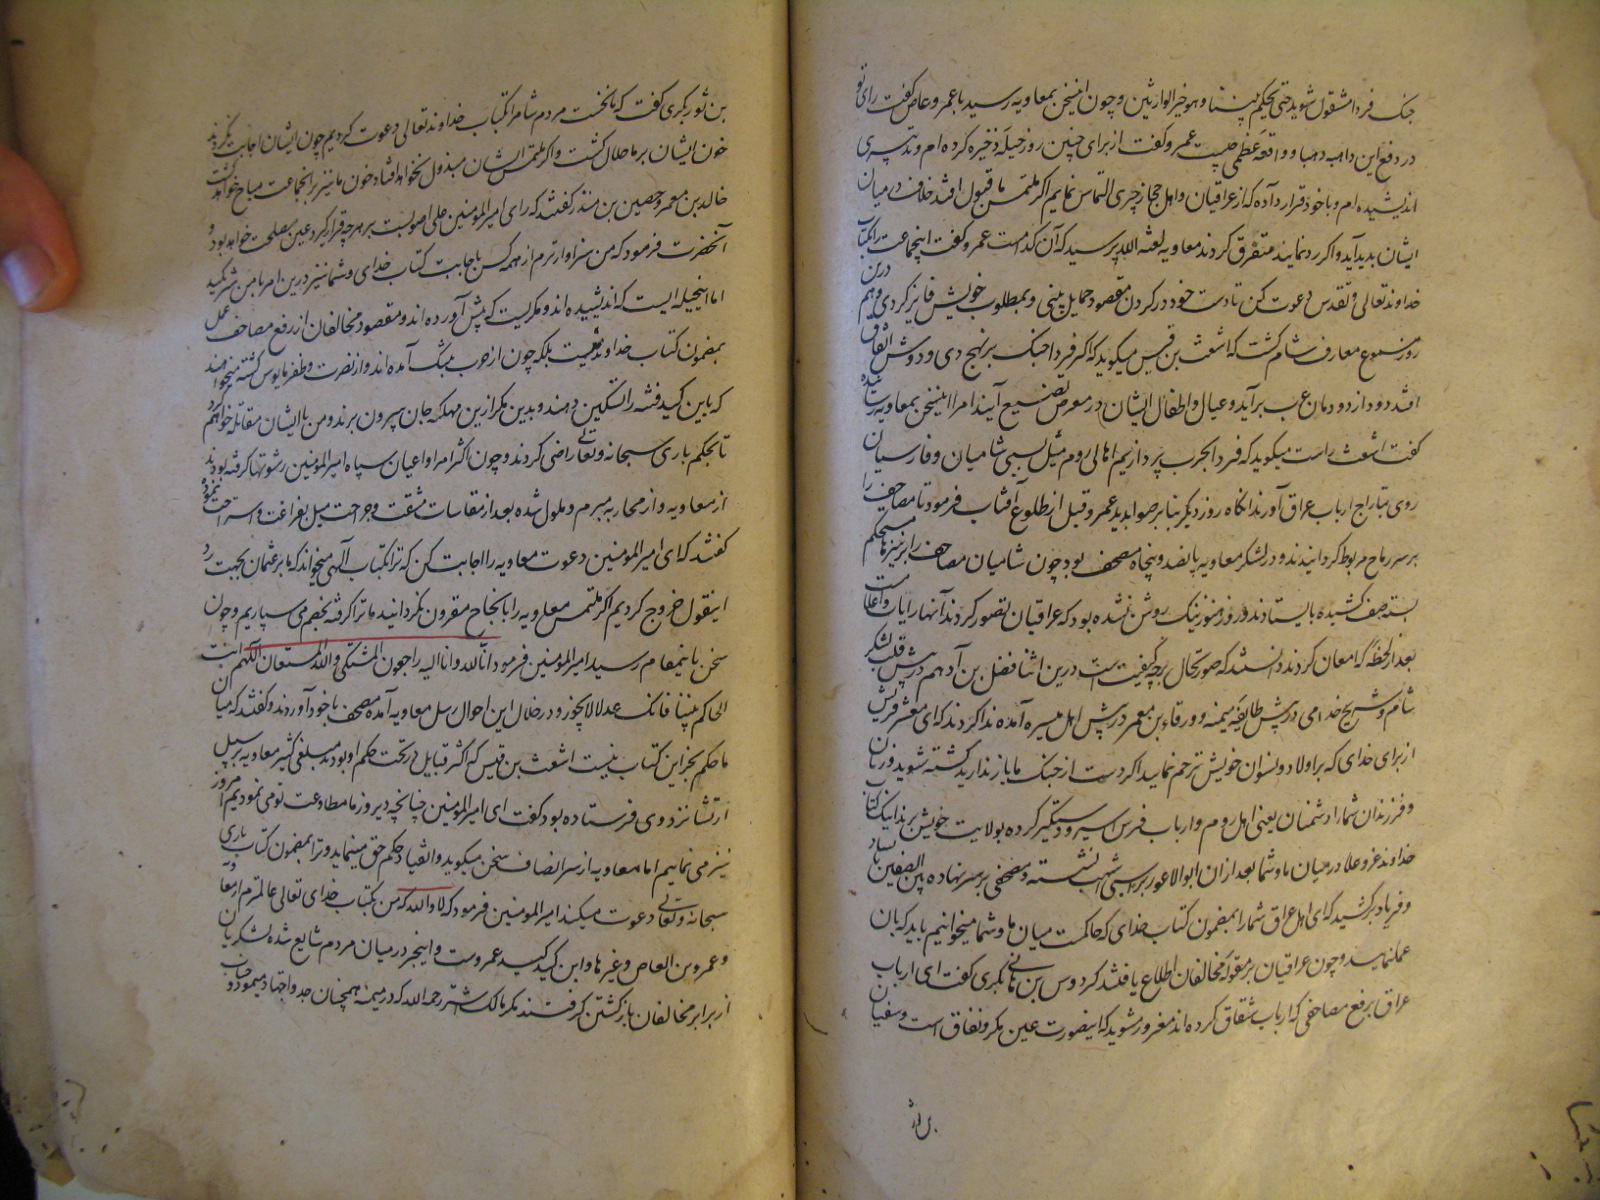 جنک فردا مشغول شوید حتی یحکم بیننا و هو خیر الوارثین و چون این سخن بمعاویه رسید با عمرو عاص کفت رای تو
در دفع این داهیه دهیا و واقعه عظمی چیست عمرو کفت از برای چنین روز حیله ذخیره کرده ام و تدبیری
اندیشیده ام و با خود قرار داده که از عراقیان و اهل حجاز چیزی التماس نمایم اکر ملتمس ما قبول افتد خلاف در میان
ایشان پدید آید و اکر رد نمایند متفرق کردند معاویه لعنه الله پرسید که آن کدامست عمرو کفت اینجماعت را بکتاب
خداوند تعالی و تقدس دعوت کن تا دست خود در کردن مقصود حمایل بینی و بمطلوب خویش فایز کردی و هم درین
روز مسموع معارف شام کشت که اشعث بن قیس میکوید که اکر فردا جنک بر نهج دی و دوش اتفاق
افتد دود از دودمان عرب برآید و عیال و اطفال ایشان در معرض تضییع آیند امرا این سخن بمعاویه رسانیدند
کفت اشعث راست میکوید که فردا بحرب پردازیم اهالی روم میل بسبی شامیان و فارسیان
روی بتاراج ارباب عراق آورند انکاه روز دیکر بنا بر صوابدید عمرو قبل از طلوع آفتاب فرمود تا مصاحف را
بر سر رماح مربوط کردانیدند و در لشکر معاویه پانصد و پنجاه مصحف بود چون شامیان مصاحف را بر نیزها مستحکم
بسته صف کشیده بایستادند و روز هنوز نیک روشن نشده بود که عراقیان تصور کردند آنها رایات و اعلام است
بعد از لحظه که امعان کردند دانستند که صورتحال بر چه کیفیت است درین اثنا فضل بن آدهم در پیش قلب لشکر
شام و شریح خدامی در پیش طایفه میمنه و ورقاء بن معمر در پیش اهل میسره آمده ندا کردند که ای معشر قریش
از برای خدای که بر اولاد و نسوان خویش ترحم نمایید اکر دست از جنک ما باز ندارید کشته شوید و زنان
و فرزندان شما را دشمنان یعنی اهل روم و ارباب فرس اسیر و دستکیر کرده بولایت خویش برند اینک کتاب
خداوند عز و علا در میان ما و شما بعد از ان ابوالاعور بر اسبی اشهب نشسته و مصحفی بر سر نهاده بین الصفین بایستاد
و فریاد برکشید که ای اهل عراق شما را بمضمون کتاب خدای که حاکمست میان ما و شما میخوانیم باید که بان
عمل نمایید و چون عراقیان بر مقوله مخالفان اطلاع یافتند کردوس بن هانی بکری کفت ای ارباب
عراق برفع مصاحفی که ارباب شقاق کرده اند مغرور مشوید که این صورت عین مکر و نفاق است و سفیان
بن ثور
بن ثور بکری کفت که ما نخست مردم شام را بکتاب خداوند تعالی دعوت کردیم چون ایشان اجابت نکردند
خون ایشان بر ما حلال کشت و اکر ملتمس ایشان مبذول نخواهد افتاد خون ما نیز بر انجماعت مباح خواهد کشت
خالد بن معمر و حصین بن منذر کفتند که رای امیر المؤمنین علی اصوبست بر هر چه قرار کیرد عین مصلحت خواهد بود و
آنحضرت فرمود که من سزاوارترم از همه کس باجابت کتاب خدای و شما نیز درین امر با من شریکید
اما این حیله ایست که اندیشیده اند و مکریست که پیش آورده اند و مقصود مخالفان از رفع مصاحف عمل
بمضمون کتاب خداوند نیست بلکه چون از حرب بتنک آمده اند و از نصرت و ظفر مایوس کشته میخواهند
که باین کید فتنه را تسکین دهند و بدین مکر ازین مهلکه جان بیرون برند و من با ایشان مقاتله خواهم کرد
تا بحکم باری سبحانه و تعالی راضی کردند و چون اکثر امرا و اعیان سپاه امیر المؤمنین رشوتها کرفته بودند
از معاویه و از محاربه مبرم و ملول شده بعد از مقاسات مشقت و جراحت میل بفراغت و استراحت نموده
کفتند که ای امیر المؤمنین دعوت معاویه را اجابت کن که ترا بکتاب آلهی میخواند که ما بر عثمان بجهت رد
اینقول خروج کردیم اکر ملتمس معاویه را بانجاح مقرون نکردانید ما ترا کرفته بخصم می سپاریم و چون
سخن باینمقام رسید امیر المؤمنین فرمود انا لله و انا الیه راجعون المشتکی و الله المستعان اللهم انت
الحاکم بیننا فانک عدل لا یجور و در خلال این احوال رسل معاویه آمده مصحف با خود آوردند و کفتند که میان
ما حکم بجز این کتاب نیست اشعث بن قیس که اکثر قبایل در تحت حکم او بودند مبلغی کثیر معاویه بر سبیل
ارتشا نزد وی فرستاده بود کفت ای امیر المؤمنین چنانچه دیروز ما مطاوعت تو می نمودیم امروز
نیز می نماییم اما معاویه از سر انصاف سخن میکوید و انقیاد حکم حق مینماید و ترا بمضمون کتاب باری
سبحانه و تعالی دعوت میکند امیر المؤمنین فرمود که لا و الله که من بکتاب خدای تعالی عالمترم از معاویه
و عمرو بن العاص و غیرها و این کید کید عمروست و اینخبر در میان مردم شایع شده لشکریان
از برابر مخالفان بازکشتن کرفتند مکر مالک اشتر رحمه الله که در میمنه همچنان جد و اجتهاد مینمود و چنان